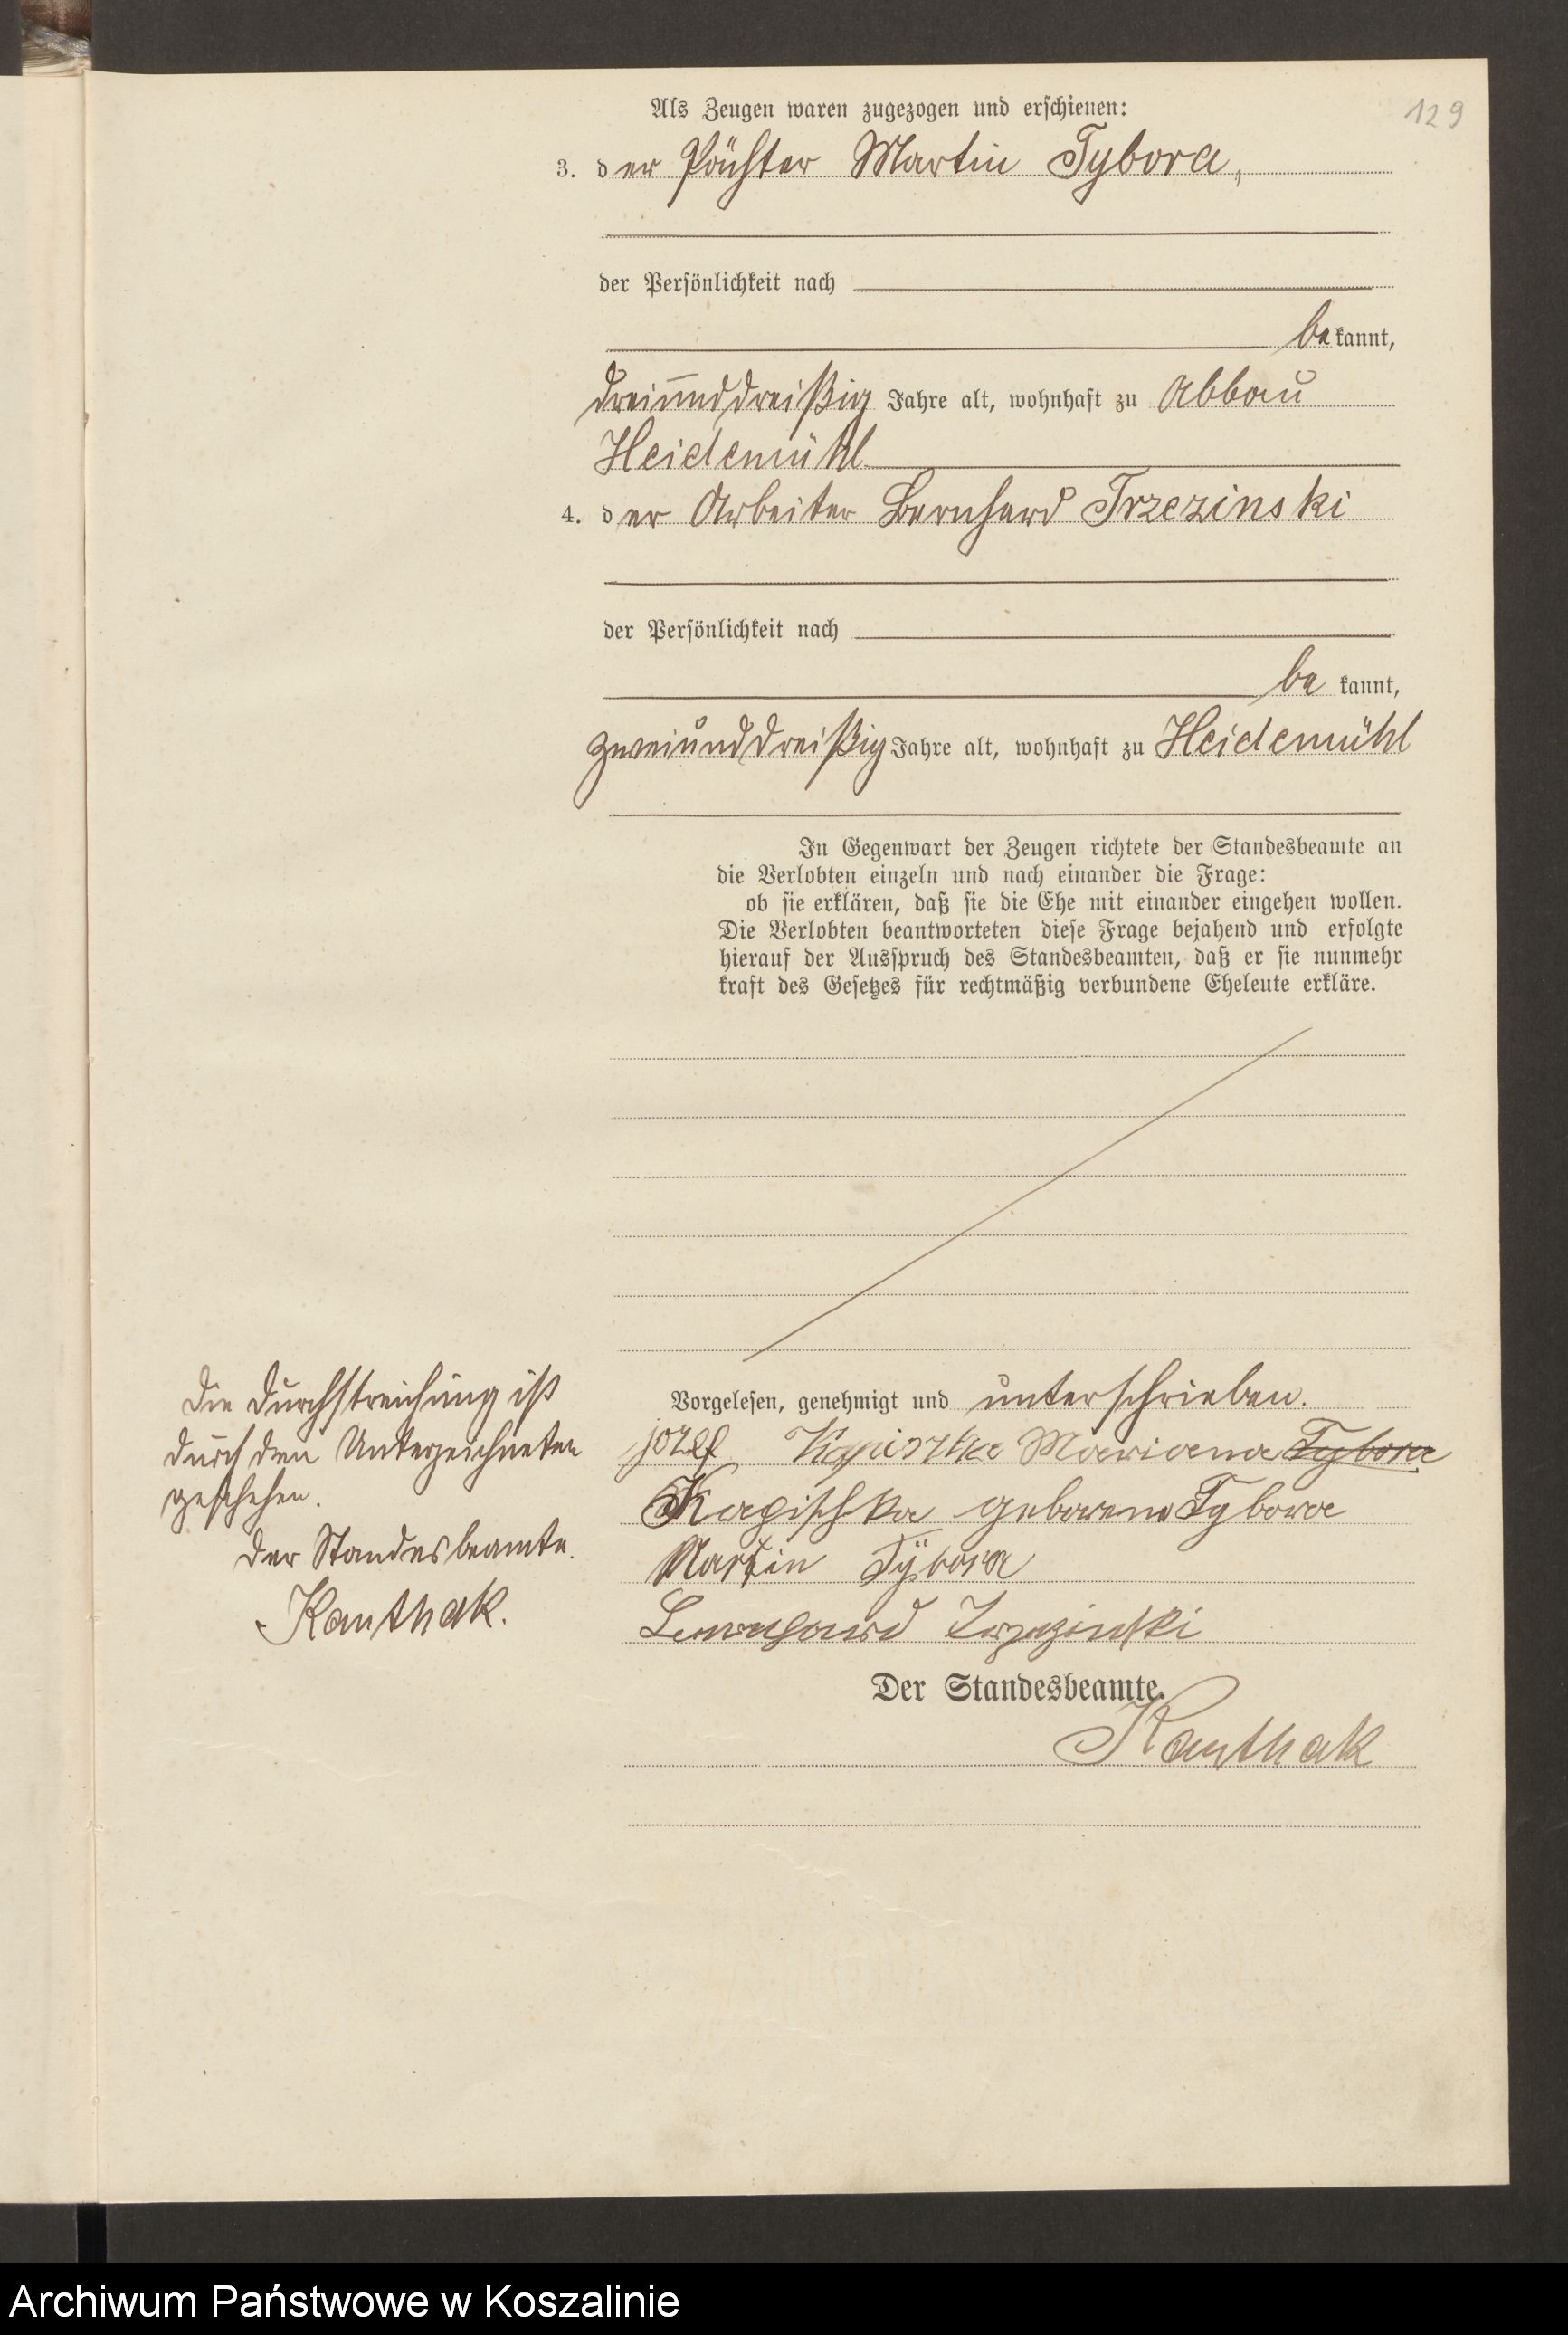 129
Als Zeugen waren zugezogen und erschienen:
3. der Pächter Martin Tybora,
der Persönlichkeit nach
bekannt,
dreiunddreißig Jahre alt, wohnhaft zu Abbau
Heidemühl
4. der Arbeiter Bernhard Trzezinski
der Persönlichkeit nach
bekannt,
zweiunddreißig Jahre alt, wohnhaft zu Heidemühl
In Gegenwart der Zeugen richtete der Standesbeamte an
die Verlobten einzeln und nach einander die Frage:
ob sie erklären, daß sie die Ehe mit einander eingehen wollen.
Die Verlobten beantworteten diese Frage bejahend und erfolgte
hierauf der Ausspruch des Standesbeamten, daß er sie nunmehr
kraft des Gesetzes für rechtmäßig verbundene Eheleute erkläre.
Vorgelesen, genehmigt und unterschrieben.
Kapiszka Mariana Tybora
Kapischka geborene Tybora
Martin Tybora
Bernhard Trzezinski
Der Standesbeamte.
Kanthak
Die Durchstreichung ist
durch den Unterzeichneten
geschehen.
Der Standesbeamte.
Kanthak.
Archiwum Państwowe w Koszalinie